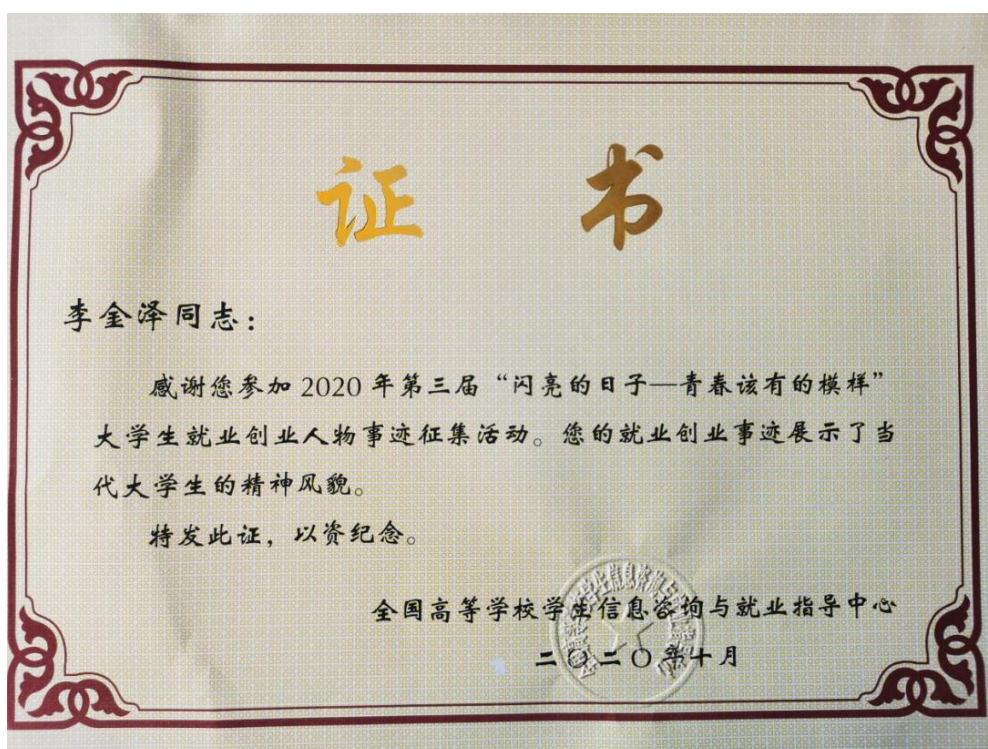 证 书
李金泽同志：
感谢您参加 2020 年第三届“闪亮的日子—青春该有的模样”
大学生就业创业人物事迹征集活动。您的就业创业事迹展示了当
代大学生的精神风貌。
特发此证，以资纪念。
全国高等学校学生信息咨询与就业指导中心
二〇二〇年十月